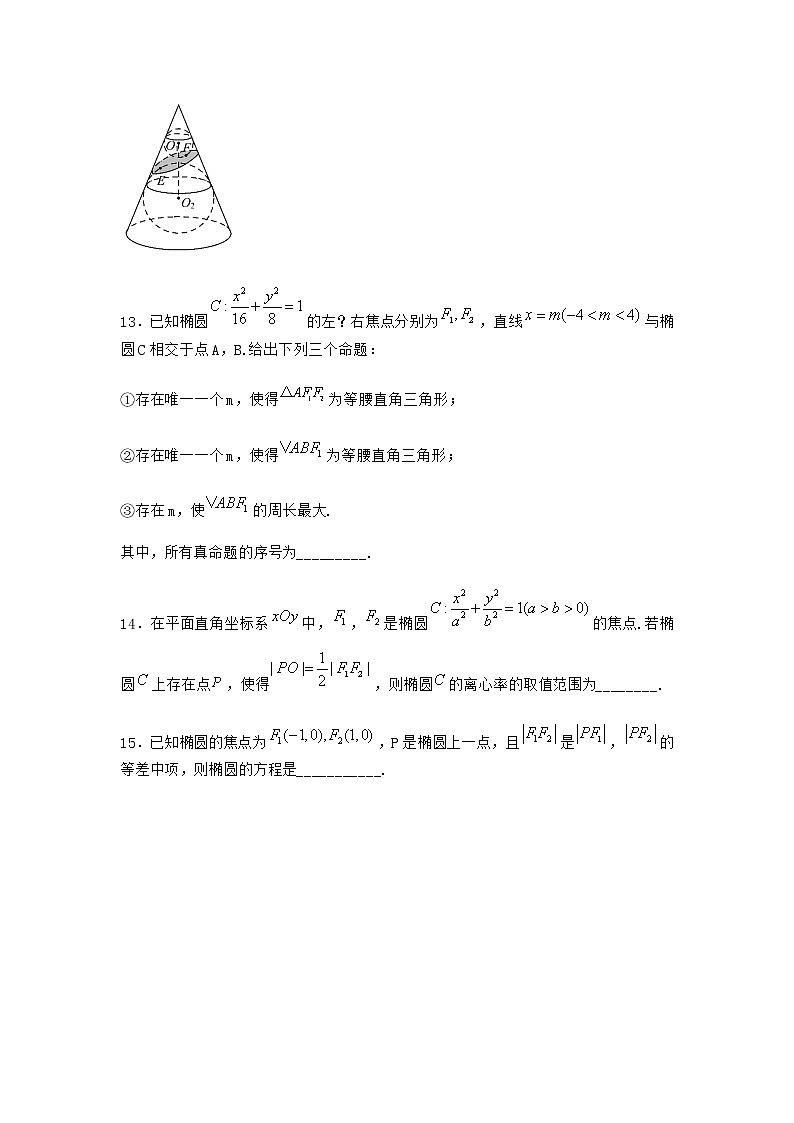 O₁
F
E
O₂
13．已知椭圆 C:x²/16+y²/8=1 的左?右焦点分别为 F₁,F₂，直线 x=m(−4<m<4) 与椭
圆C相交于点A，B.给出下列三个命题：
①存在唯一一个m，使得△AF₁F₂为等腰直角三角形；
②存在唯一一个m，使得∨ABF₁为等腰直角三角形；
③存在m，使∨ABF₁的周长最大.
其中，所有真命题的序号为_________.
14．在平面直角坐标系 xOy 中，F₁，F₂是椭圆 C:x²/a²+y²/b²=1(a>b>0) 的焦点.若椭
圆C上存在点P，使得|PO|=1/2|F₁F₂|，则椭圆C的离心率的取值范围为________.
15．已知椭圆的焦点为 F₁(−1,0),F₂(1,0)，P是椭圆上一点，且|F₁F₂|是|PF₁|，|PF₂|的
等差中项，则椭圆的方程是___________.